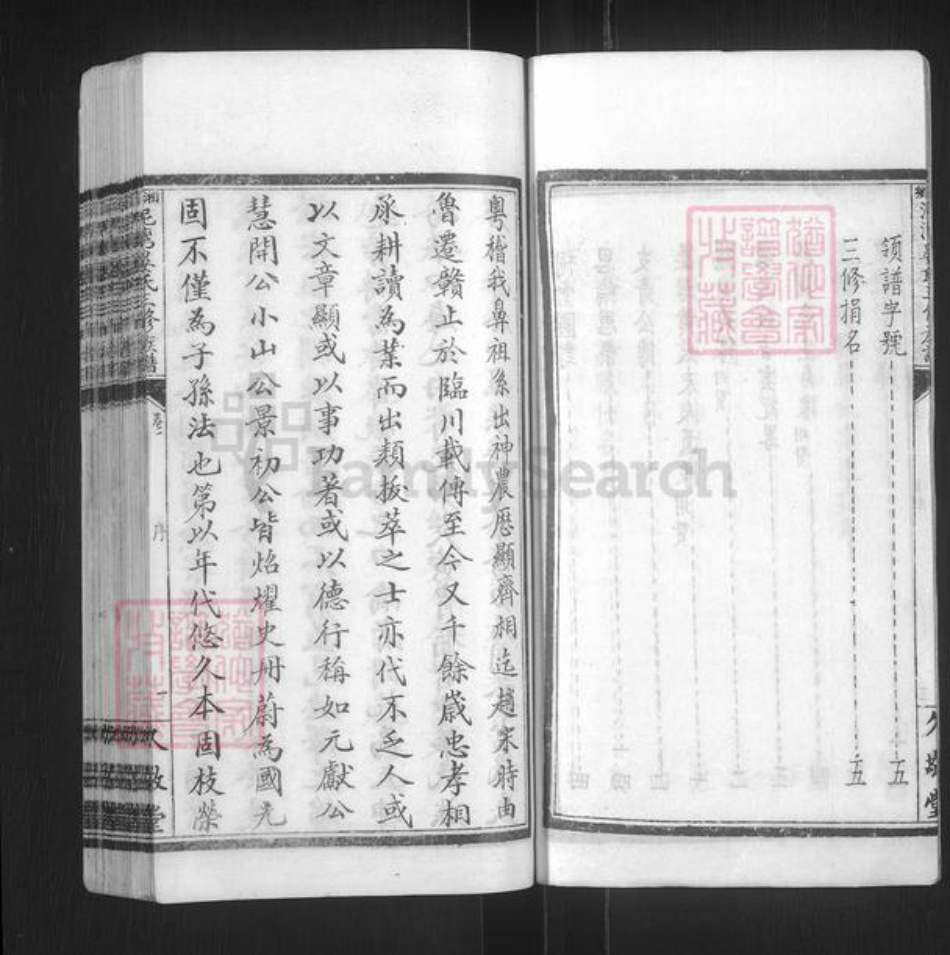 領譜字號 十五
三修捐名 十五
久敬堂
粵稽我鼻祖系出神農歷顯齊相迄趙宋時由
魯遷贛止於臨川載傳至今又千餘歲忠孝相
承耕讀為業而出類拔萃之士亦代不乏人或
以文章顯或以事功著或以德行稱如元獻公
慧開公小山公景初公皆炤燿史冊蔚為國光
固不僅為子孫法也第以年代悠久本固枝榮
卷一
序
一
久敬堂
FamilySearch